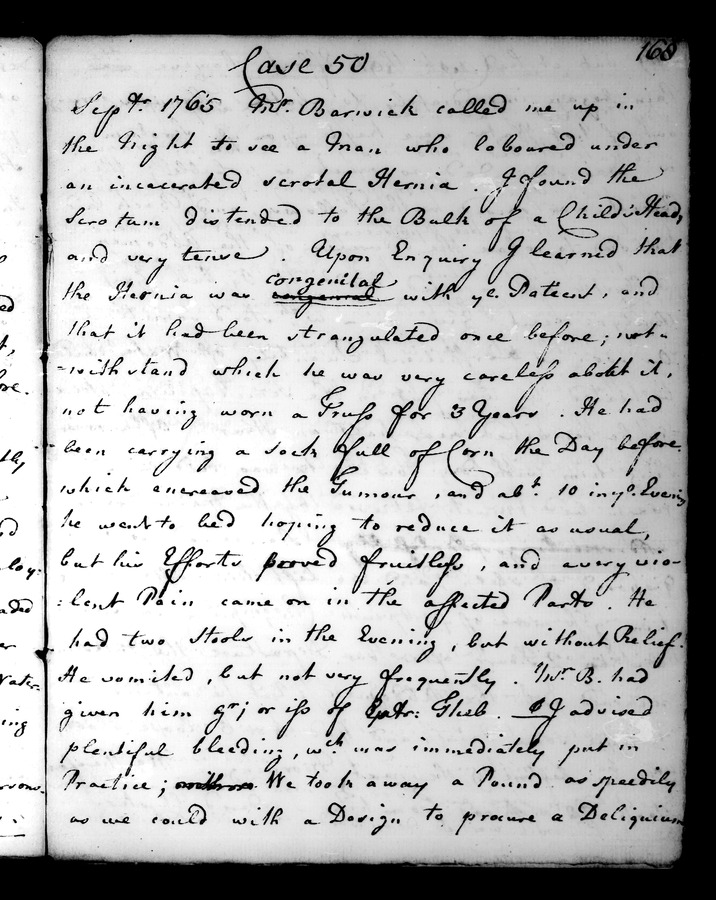 168
Case 50
Septr. 1765 Mr. Barwick called me up in
the Night to see a Man who laboured under
an incacerated scrotal Hernia. I found the
Scrotum distended to the Bulk of a Child's Head,
and very tense. Upon Enquiry I learned that
the Hernia was congenital with ye. Patient, and
that it had been strangulated once before; not-
-withstand which he was very careless about it,
not having worn a Truss for 3 Years. He had
been carrying a sack full of Corn the Day before.
which encreased the Tumour, and abt. 10 in ye. Evening
he went to bed hoping to reduce it as usual,
but his Efforts proved fruitless, and a very vio-
:lent Pain came on in the affected Parts. He
had two stools in the Evening, but without Relief.
He vomited, but not very frequently. Mr. B. had
given him gr; or iss of Extr: Theb. I advised
plentiful bleeding, wch. was immediately put in
Practice; We took away a Pound as speedily
as we could with a Design to procure a Deliquium